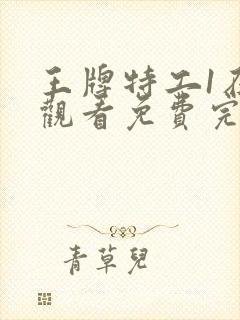 王牌特工1在
觀看免費完
青草兒